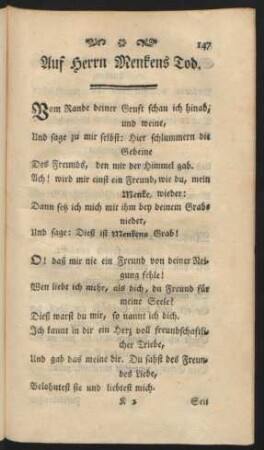 147
Auf Herrn Menkens Tod.
Vom Rande deiner Gruft schau ich hinab,
und weine,
Und sage zu mir selbst: Hier schlummern die
Gebeine
Des Freunds, den mir der Himmel gab.
Ach! wird mir einst ein Freund, wie du, mein
Menke, wieder:
Dann setz ich mich mit ihm bey deinem Grab
nieder,
Und sage: Dieß ist Menkens Grab!
O! daß mir nie ein Freund von deiner Nei-
gung fehle!
Wen liebe ich mehr, als dich, du Freund für
meine Seele?
Dieß warst du mir, so nannt ich dich.
Ich kannt in dir ein Herz voll freundschaftli-
cher Triebe,
Und gab das meine dir. Du sahst des Freun-
des Liebe,
Belohntest sie und liebtest mich.
K 2 Seit